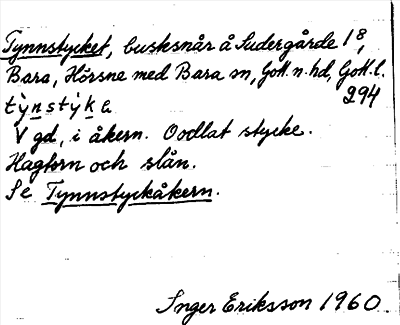 Tynnstycket, busksnår å Sudergårde 1⁸,
Bara, Hörsne med Bara sn, Gotl. n. hd, Gotl. l.
294
tỳnstỳka
V gd, i åkern. Oodlat stycke.
Hagtorn och slån.
Se Tynnstyckåkern.
Inger Eriksson 1960.